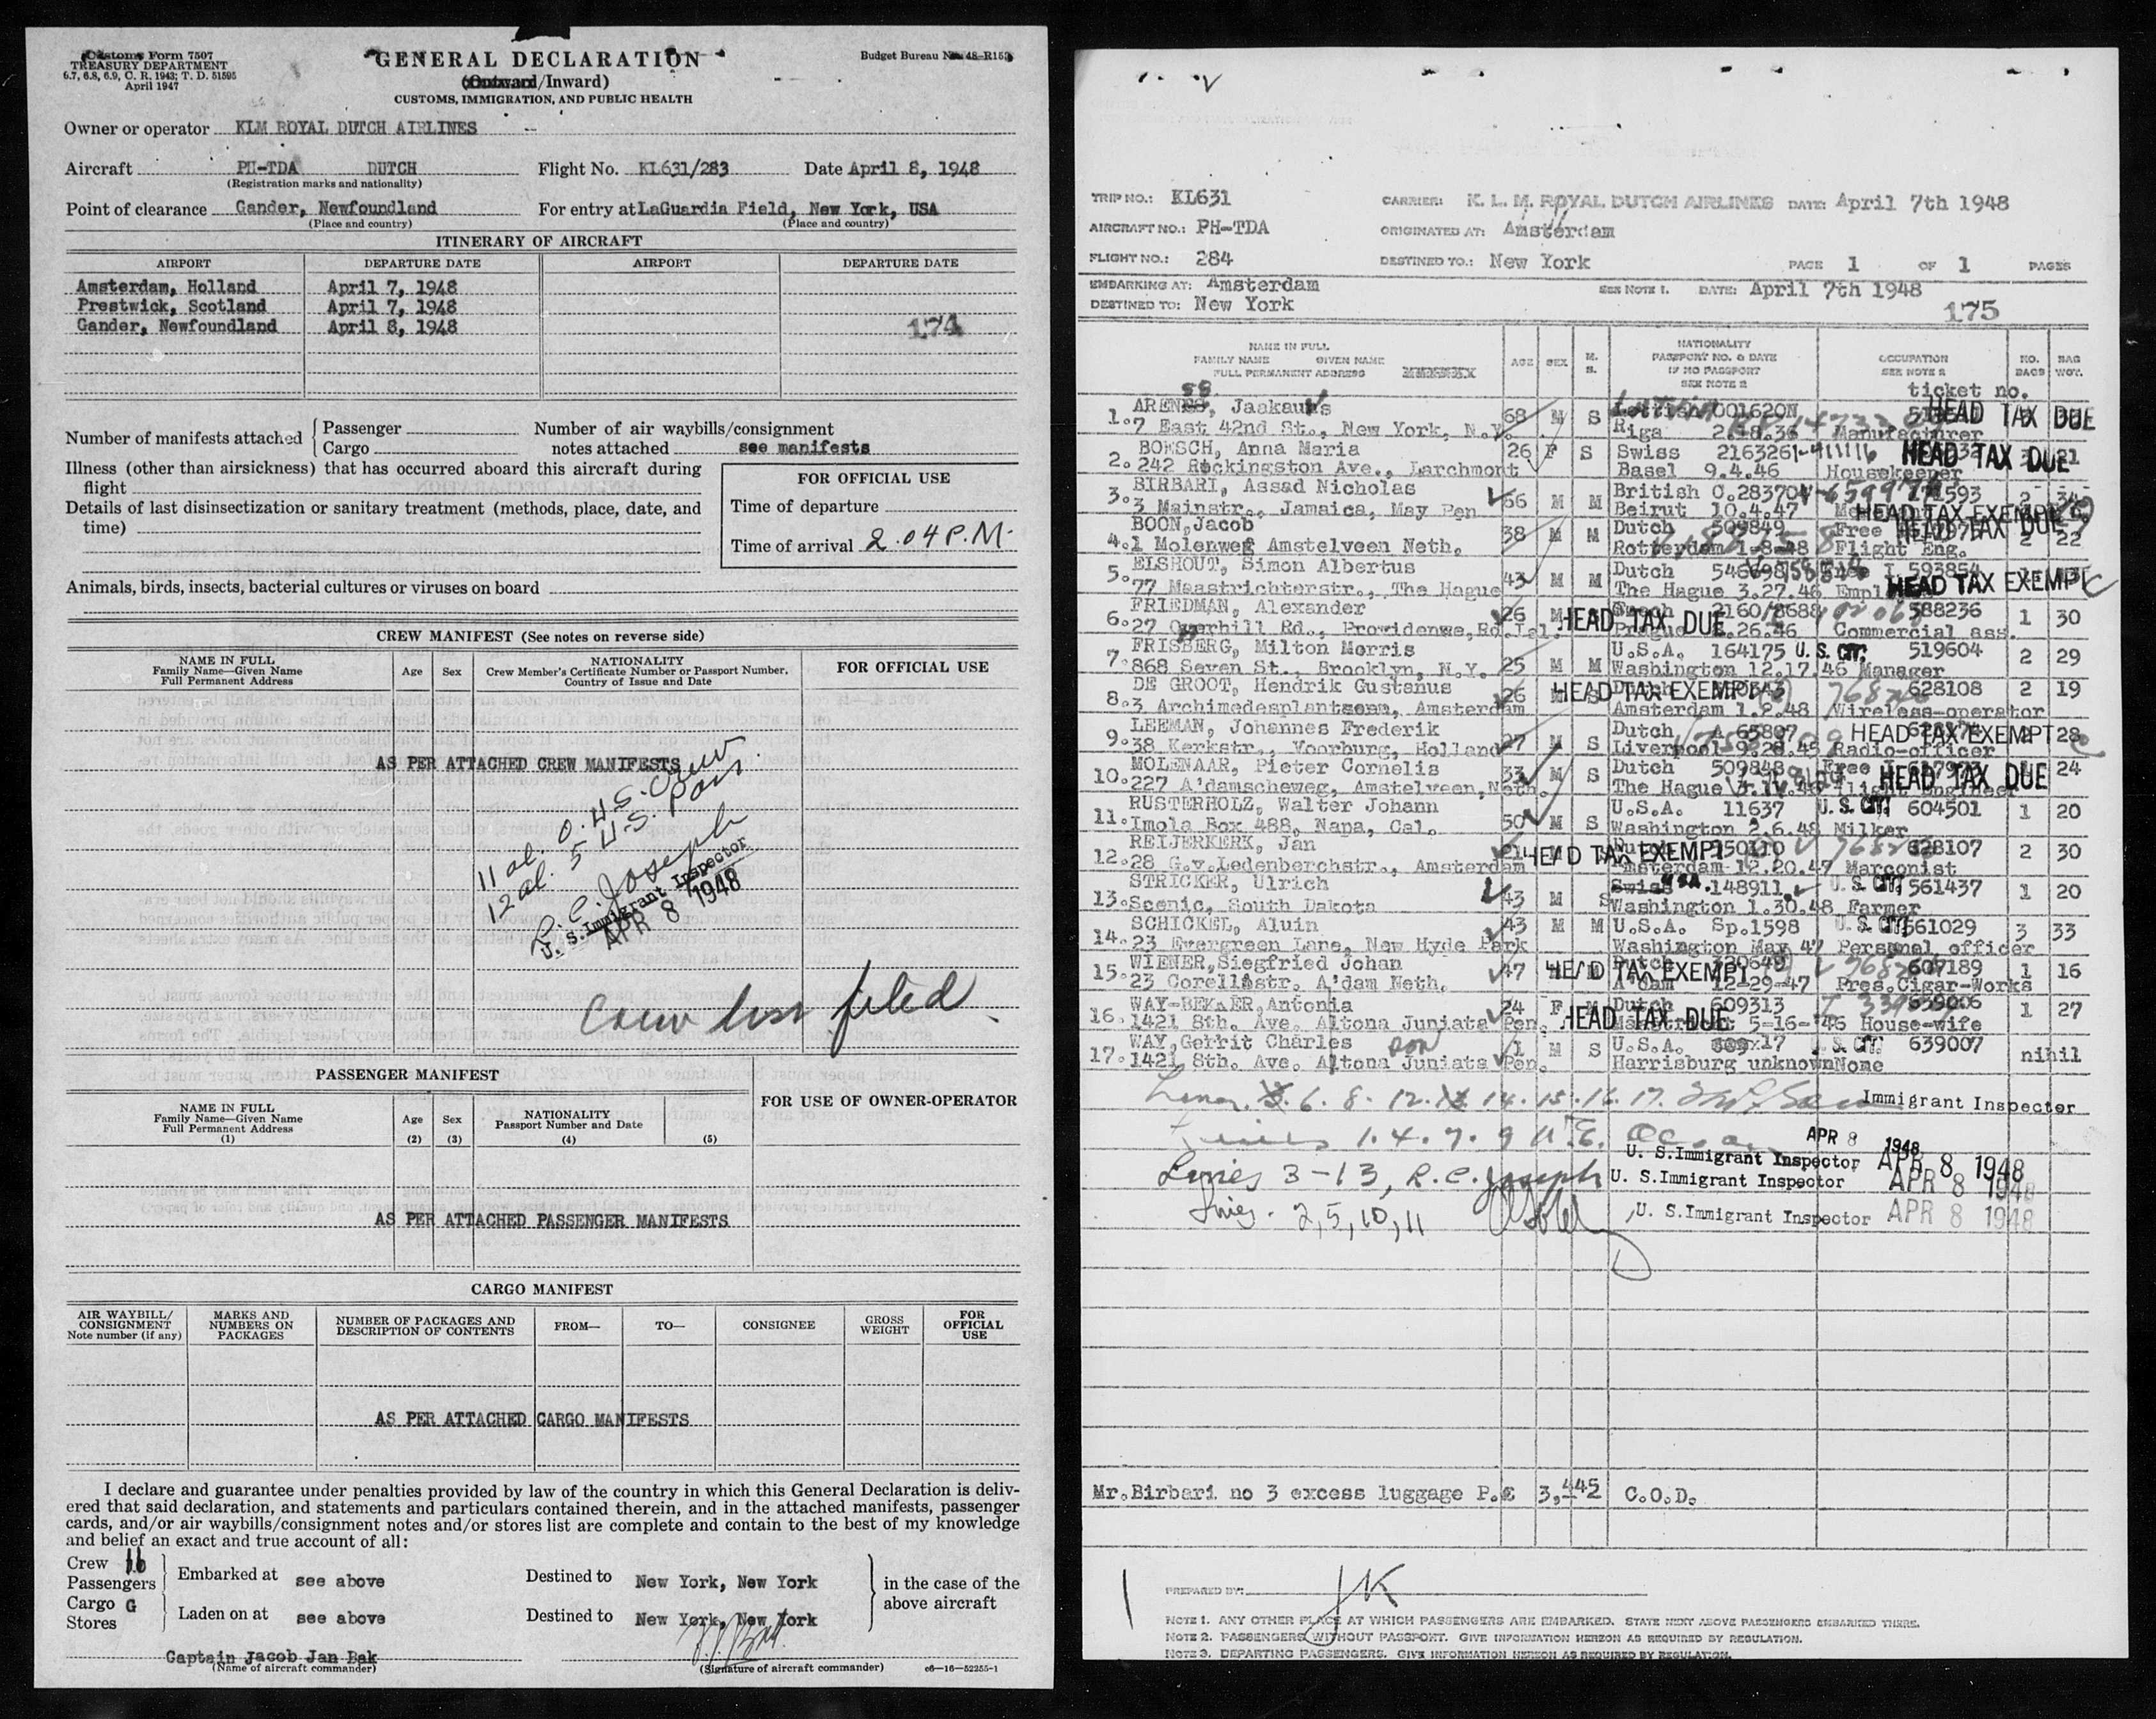 Customs Form 7507
TREASURY DEPARTMENT
6.7, 6.8, 6.9, C. R. 1943; T. D. 51595
April 1947
GENERAL DECLARATION
(Outward/Inward)
CUSTOMS, IMMIGRATION, AND PUBLIC HEALTH
Budget Bureau No. 48-R153
Owner or operator KLM ROYAL DUTCH AIRLINES
Aircraft PH-TDA DUTCH Flight No. KL631/283 Date April 8, 1948
(Registration marks and nationality)
Point of clearance Gander, Newfoundland For entry at LaGuardia Field, New York, USA
(Place and country) (Place and country)
ITINERARY OF AIRCRAFT
AIRPORT DEPARTURE DATE AIRPORT DEPARTURE DATE
Amsterdam, Holland April 7, 1948
Prestwick, Scotland April 7, 1948
Gander, Newfoundland April 8, 1948 174
Number of manifests attached { Passenger Number of air waybills/consignment
Cargo notes attached see manifests
Illness (other than airsickness) that has occurred aboard this aircraft during
flight
Details of last disinsectization or sanitary treatment (methods, place, date, and
time)
FOR OFFICIAL USE
Time of departure
Time of arrival 2.04 P.M.
Animals, birds, insects, bacterial cultures or viruses on board
CREW MANIFEST (See notes on reverse side)
NAME IN FULL
Family Name—Given Name
Full Permanent Address
Age Sex
NATIONALITY
Crew Member's Certificate Number or Passport Number,
Country of Issue and Date
FOR OFFICIAL USE
AS PER ATTACHED CREW MANIFESTS
11 al. O. H. S. Crew
12 al. 5 U.S. Pass
R. C. Joseph
U. S. Immigrant Inspector
APR 8 1948
Crew list filed
PASSENGER MANIFEST
NAME IN FULL
Family Name—Given Name
Full Permanent Address
(1)
Age
(2)
Sex
(3)
NATIONALITY
Passport Number and Date
(4) (5)
FOR USE OF OWNER-OPERATOR
AS PER ATTACHED PASSENGER MANIFESTS
CARGO MANIFEST
AIR WAYBILL/
CONSIGNMENT
Note number (if any)
MARKS AND
NUMBERS ON
PACKAGES
NUMBER OF PACKAGES AND
DESCRIPTION OF CONTENTS
FROM— TO— CONSIGNEE
GROSS
WEIGHT
FOR
OFFICIAL
USE
AS PER ATTACHED CARGO MANIFESTS
I declare and guarantee under penalties provided by law of the country in which this General Declaration is deliv-
ered that said declaration, and statements and particulars contained therein, and in the attached manifests, passenger
cards, and/or air waybills/consignment notes and/or stores list are complete and contain to the best of my knowledge
and belief an exact and true account of all:
Crew
Passengers
Embarked at see above Destined to New York, New York
in the case of the
above aircraft
Cargo G
Stores
Laden on at see above Destined to New York, New York
Captain Jacob Jan Bak
(Name of aircraft commander) (Signature of aircraft commander) c6—16—52255-1
TRIP NO.: KL631 CARRIER: K. L. M. ROYAL DUTCH AIRLINES DATE: April 7th 1948
AIRCRAFT NO.: PH-TDA ORIGINATED AT: Amsterdam
FLIGHT NO.: 284 DESTINED TO.: New York PAGE 1 OF 1 PAGES
EMBARKING AT: Amsterdam SEE NOTE 1. DATE: April 7th 1948
DESTINED TO: New York 175
NAME IN FULL
FAMILY NAME GIVEN NAME
FULL PERMANENT ADDRESS
AGE SEX M. S.
NATIONALITY
PASSPORT NO. & DATE
IF NO PASSPORT
SEE NOTE 2
OCCUPATION
SEE NOTE 2
ticket no.
NO. BAGS
BAG WGT.
1. Jaakaus 68 M S 001620N HEAD TAX DUE
7 East 42nd St., New York, N.Y. Riga 2.18.36 Manufacturer
2. BOESCH, Anna Maria 26 F S Swiss 2163261 HEAD TAX DUE 21
242 Rockingston Ave., Larchmont Basel 9.4.46 Housekeeper
3. BIRBARI, Assad Nicholas 56 M M British 0.28370 2 34
3 Mainstr., Jamaica, May Pen Beirut 10.4.47 HEAD TAX EXEMPT
4. BOON, Jacob 38 M M Dutch 509849 Free HEAD TAX DUE
1 Molenweg Amstelveen Neth. Rotterdam 1-8-48 Flight Eng. 2 22
5. ELSHOUT, Simon Albertus 43 M M Dutch 546698 593854
77 Maastrichterstr., The Hague The Hague 3.27.46 HEAD TAX EXEMPT
6. FRIEDMAN, Alexander 26 M HEAD TAX DUE 2160/8688 588236 1 30
27 Overhill Rd., Providenwe, Rd.Isl. Prague 2.26.46 Commercial ass.
7. FRISBERG, Milton Morris 25 M M U.S.A. 164175 U. S. CIT. 519604 2 29
868 Seven St., Brooklyn, N.Y. Washington 12.17.46 Manager
8. DE GROOT, Hendrik Gustanus 26 M S HEAD TAX EXEMPT 628108 2 19
3 Archimedesplantsoen, Amsterdam Amsterdam 1.2.48 Wireless-operator
9. LEEMAN, Johannes Frederik 27 M S Dutch A 65807 HEAD TAX EXEMPT 28
38 Kerkstr., Voorburg, Holland Liverpool 9.28.45 Radio-officer
10. MOLENAAR, Pieter Cornelis 33 M S Dutch 509848 Free HEAD TAX DUE 24
227 A'damscheweg, Amstelveen, Neth. The Hague Flight Engineer
11. RUSTERHOLZ, Walter Johann 50 M S U.S.A. 11637 U. S. CIT. 604501 1 20
Imola Box 488, Napa, Cal. Washington 2.6.48 Milker
12. REIJERKERK, Jan 21 HEAD TAX EXEMPT 628107 2 30
28 G.v.Ledenberchstr., Amsterdam Amsterdam 12.20.47 Marconist
13. STRICKER, Ulrich 43 M S Swiss USA 148911 U. S. CIT. 561437 1 20
Scenic, South Dakota Washington 1.30.48 Farmer
14. SCHICKEL, Aluin 43 M M U.S.A. Sp.1598 U. S. CIT. 561029 3 33
23 Evergreen Lane, New Hyde Park Washington May 47 Personal officer
15. WIENER, Siegfried Johan 47 HEAD TAX EXEMPT 607189 1 16
23 Corellistr. A'dam Neth. A'dam 12-29-47 Pres.Cigar-Works
16. WAY-BEKKER, Antonia 24 F M Dutch 609313 639006 1 27
1421 8th. Ave. Altona Juniata Pen. HEAD TAX DUE 5-16-46 House-wife
17. WAY, Gerrit Charles son 1 M S U.S.A. U. S. CIT. 639007 nihil
1421 8th. Ave. Altona Juniata Pen. Harrisburg unknown None
6. 8. 12. 14. 15. 16. 17. Immigrant Inspector
1. 4. 7. 9 APR 8 1948
U. S. Immigrant Inspector APR 8 1948
Lines 3-13, R. C. Joseph U. S. Immigrant Inspector APR 8 1948
Lines. 2, 5, 10, 11 U. S. Immigrant Inspector APR 8 1948
Mr. Birbari no 3 excess luggage C.O.D.
PREPARED BY: JK
NOTE 1. ANY OTHER PLACE AT WHICH PASSENGERS ARE EMBARKED. STATE NEXT ABOVE PASSENGERS EMBARKED THERE.
NOTE 2. PASSENGERS WITHOUT PASSPORT. GIVE INFORMATION HEREON AS REQUIRED BY REGULATION.
NOTE 3. DEPARTING PASSENGERS. GIVE INFORMATION HEREON AS REQUIRED BY REGULATION.